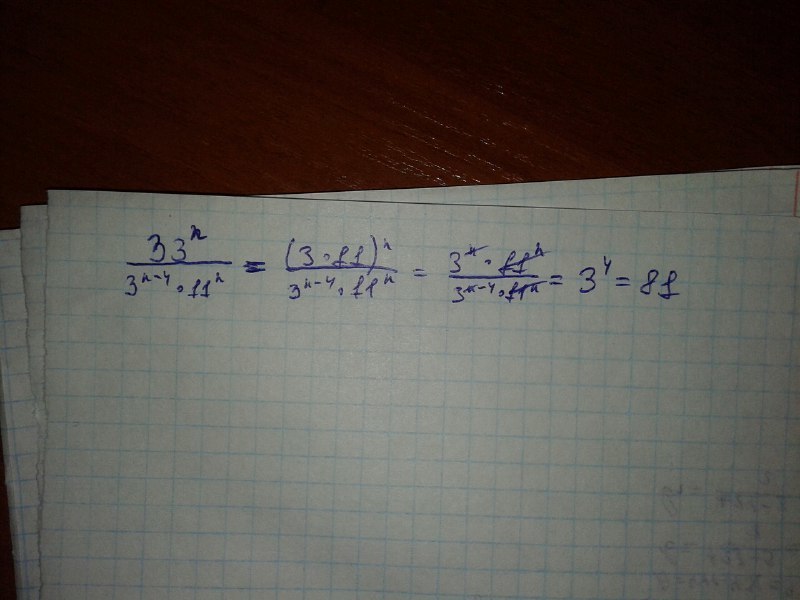 33ⁿ / (3ⁿ⁻⁴ · 11ⁿ) = (3 · 11)ⁿ / (3ⁿ⁻⁴ · 11ⁿ) = 3ⁿ · 11ⁿ / (3ⁿ⁻⁴ · 11ⁿ) = 3⁴ = 81